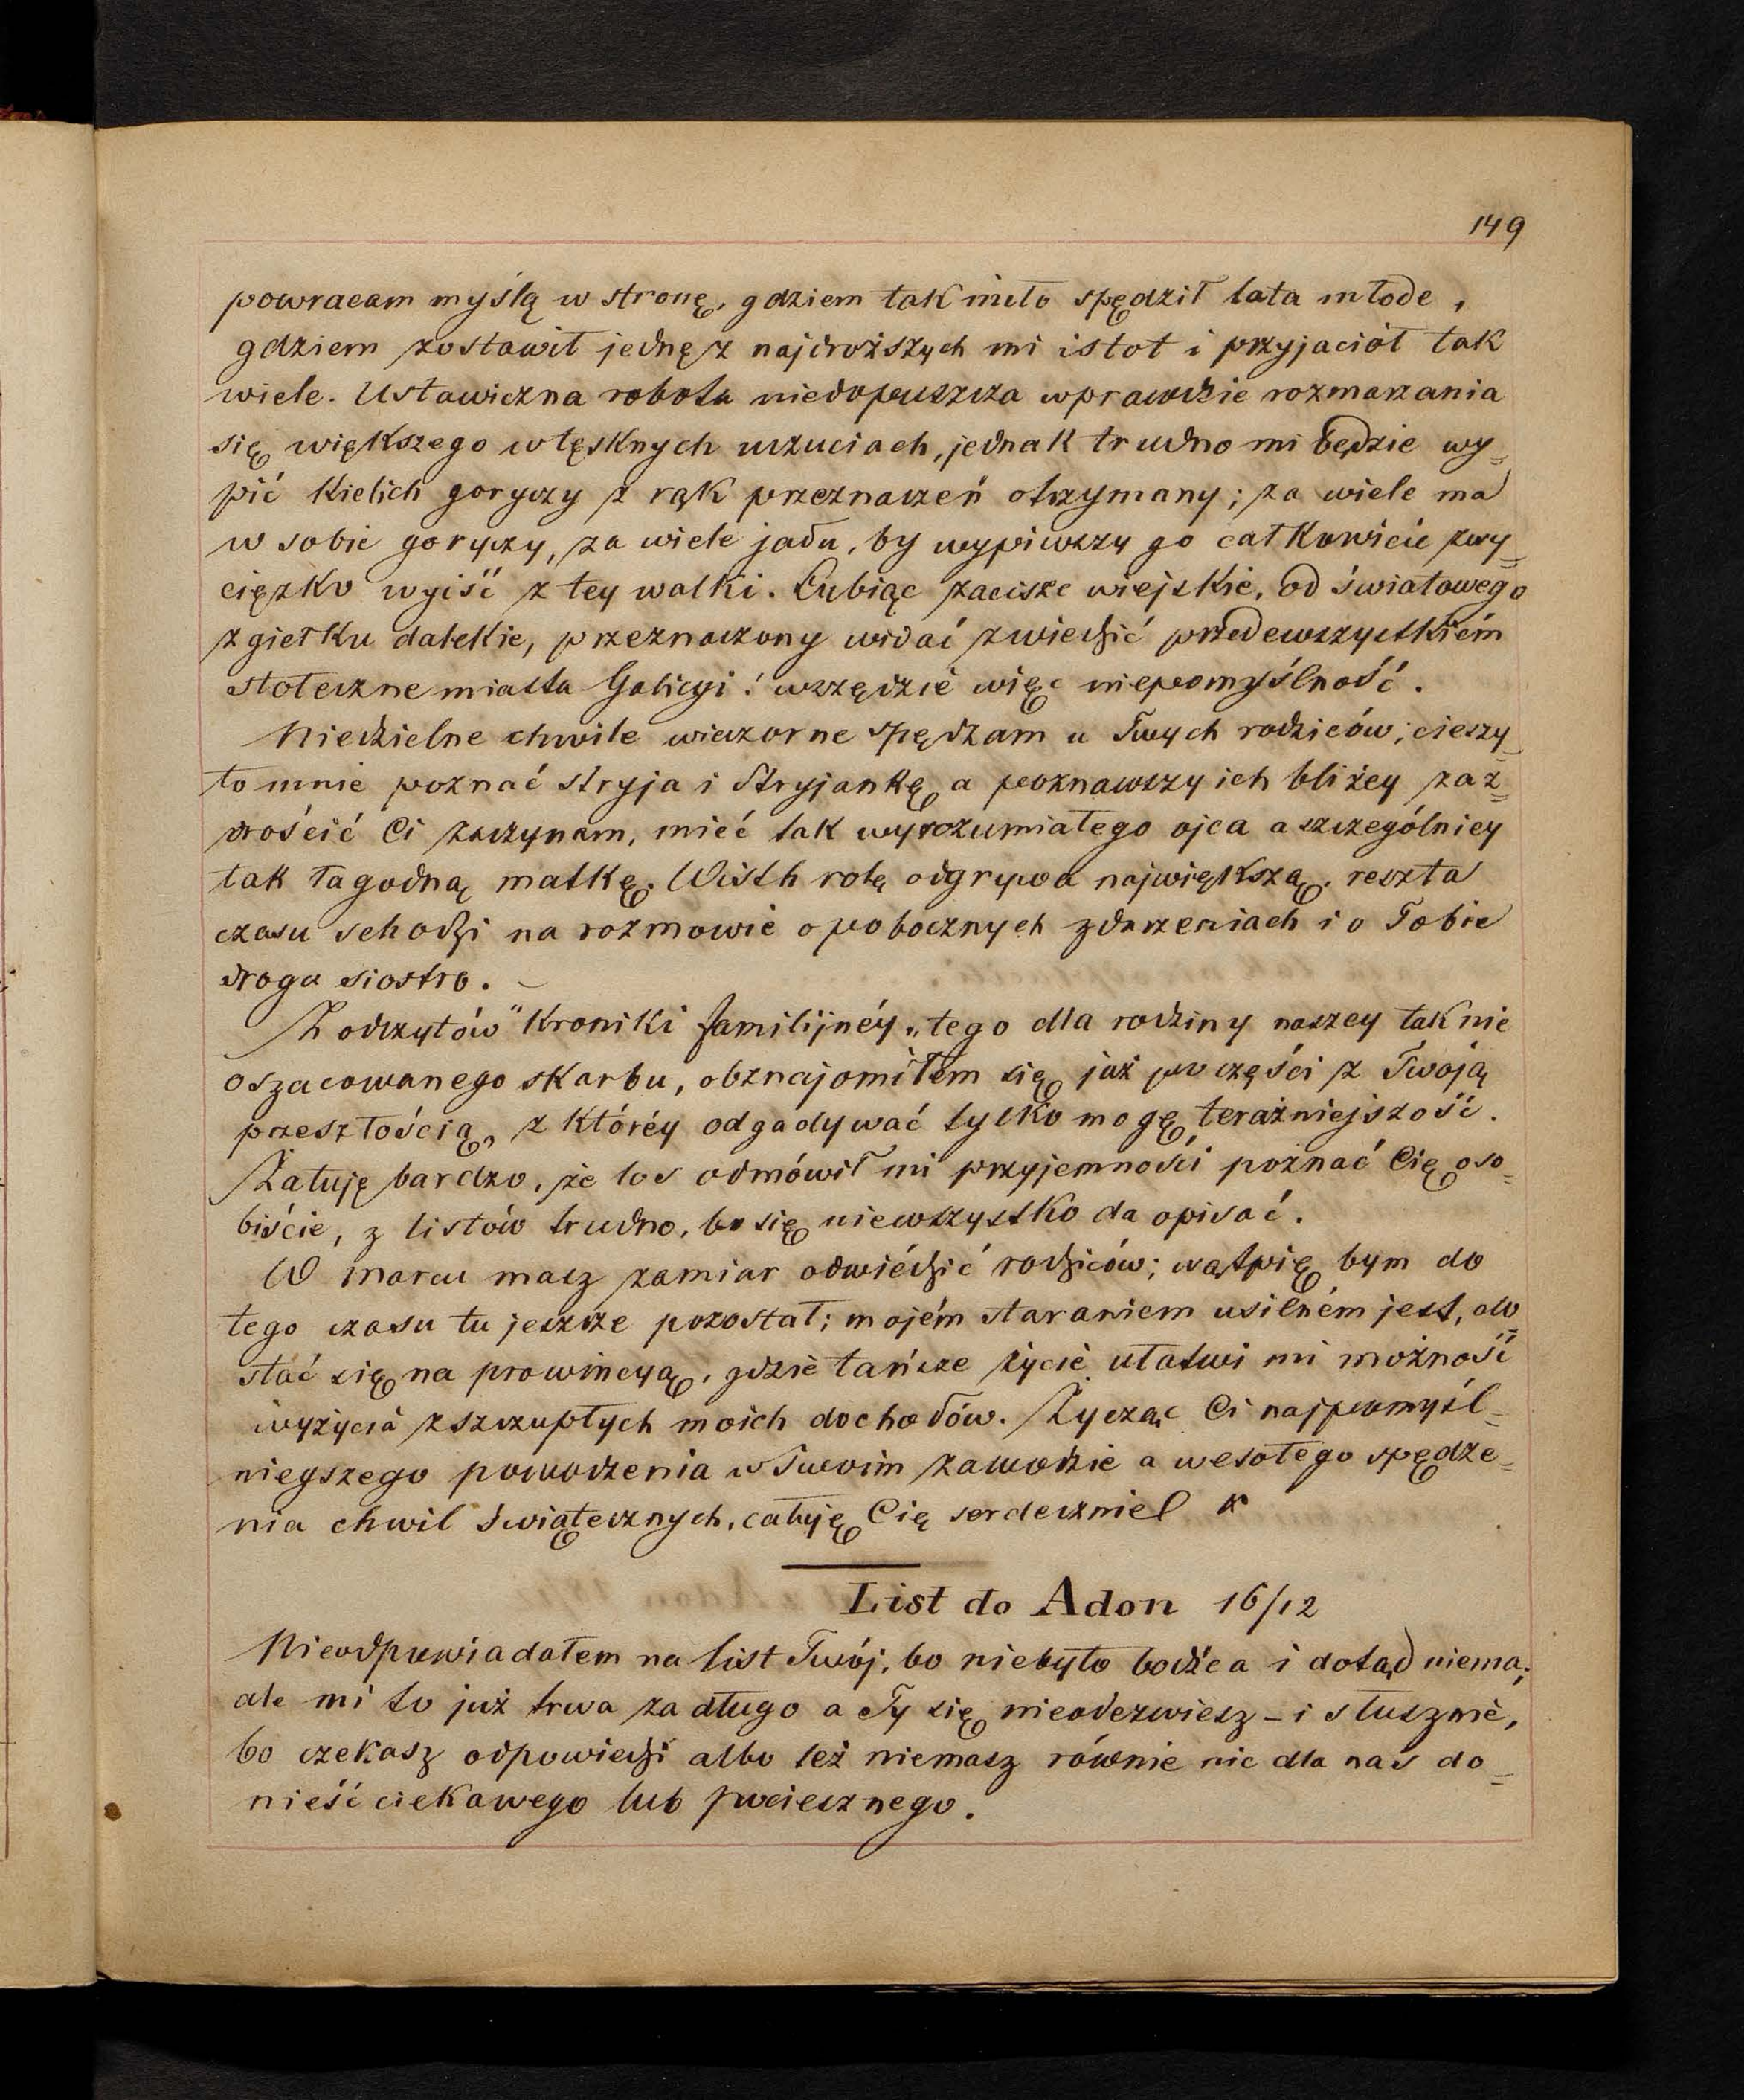 149
powracam myślą w stronę, gdziem tak miło spędził lata młode,
gdziem zostawił jednę z najdroższych mi istot i przyjaciół tak
wiele. Ustawiczna robota niedopuszcza wprawdzie rozmarzania
się większego w tęsknych uczuciach, jednak trudno mi będzie wy=
pić kielich goryczy z rąk przeznaczeń otrzymany; za wiele ma
w sobie goryczy, za wiele jadu, by wypiwszy go całkowicie zwy=
cięzko wyiść z tey walki. Lubiąc zacisze wiejskie, od światowego
zgiełku dalekie, przeznaczony widać zwiedzić przedewszystkiém
stołeczne miasta Galicyi! wszędzie więc niepomyślność.
Niedzielne chwile wieczorne spędzam u Twych rodziców; cieszy
to mnie poznać stryja i Stryjankę a poznawszy ich bliżey zaz=
drościć Ci zaczynam, mieć tak wyrozumiałego ojca a szczególniey
tak łagodną matkę. Wisth rolę odgrywa największą, reszta
czasu schodzi na rozmowie o pobocznych zdarzeniach i o Tobie
droga siostro. –
Z odczytów "Kroniki familijnéy„ tego dla rodziny naszey tak nie
oszacowanego skarbu, obznajomiłem się już po części z Twoją
przeszłością, z któréy odgadywać tylko mogę teraźniejszość.
Żałuję bardzo, że los odmówił mi przyjemności poznać Cię oso=
biście, z listów trudno, bo się niewszystko da opisać.
W marcu masz zamiar odwiédzić rodziców; wątpię bym do
tego czasu tu jeszcze pozostał; mojém staraniem usilném jest, do=
stać się na prowincyą, gdzie tańsze życie ułatwi mi możność
wyżycia z szczupłych moich dochodów. Życząc Ci najpomyśl=
niejszego powodzenia w Twoim zawodzie a wesołego spędze=
nia chwil świątecznych, całuję Cię serdecznie K
List do Adon 16/12
Nieodpowiadałem na list Twój, bo niebyło bodźca i dotąd niema;
ale mi to już trwa za długo a Ty się nieodezwiesz – i słusznie,
bo czekasz odpowiedzi albo też niemasz równie nic dla nas do=
nieść ciekawego lub pociesznego.